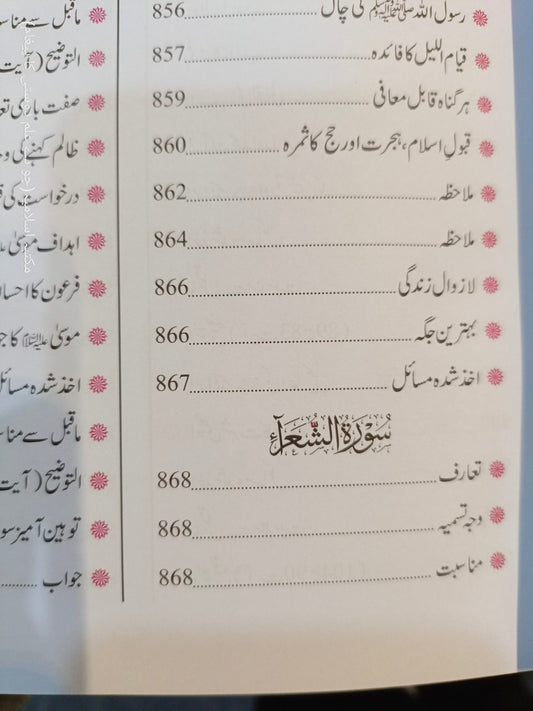 رسول اللہ ﷺ کی چال ........ 856
قیام اللیل کا فائدہ ........ 857
ہر گناہ قابل معافی ........ 859
قبولِ اسلام، ہجرت اور حج کا ثمرہ ........ 860
ملاحظہ ........ 862
ملاحظہ ........ 864
لازوال زندگی ........ 866
بہترین جگہ ........ 866
اخذ شدہ مسائل ........ 867
سُوْرَةُ الشُّعَرَآءِ
تعارف ........ 868
وجہ تسمیہ ........ 868
مناسبت ........ 868
ماقبل سے
التوضیح (آیت
صفت باری
ظالم کہنے کی
درخواست کی
اہداف موسیٰ
فرعون کا
موسیٰ علیہ السلام کا
اخذ شدہ
ماقبل سے
التوضیح (آیت
توہین آمیز
جواب ........